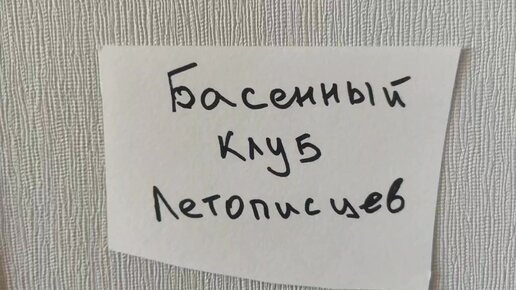 Басенный
клуб
Летописцев